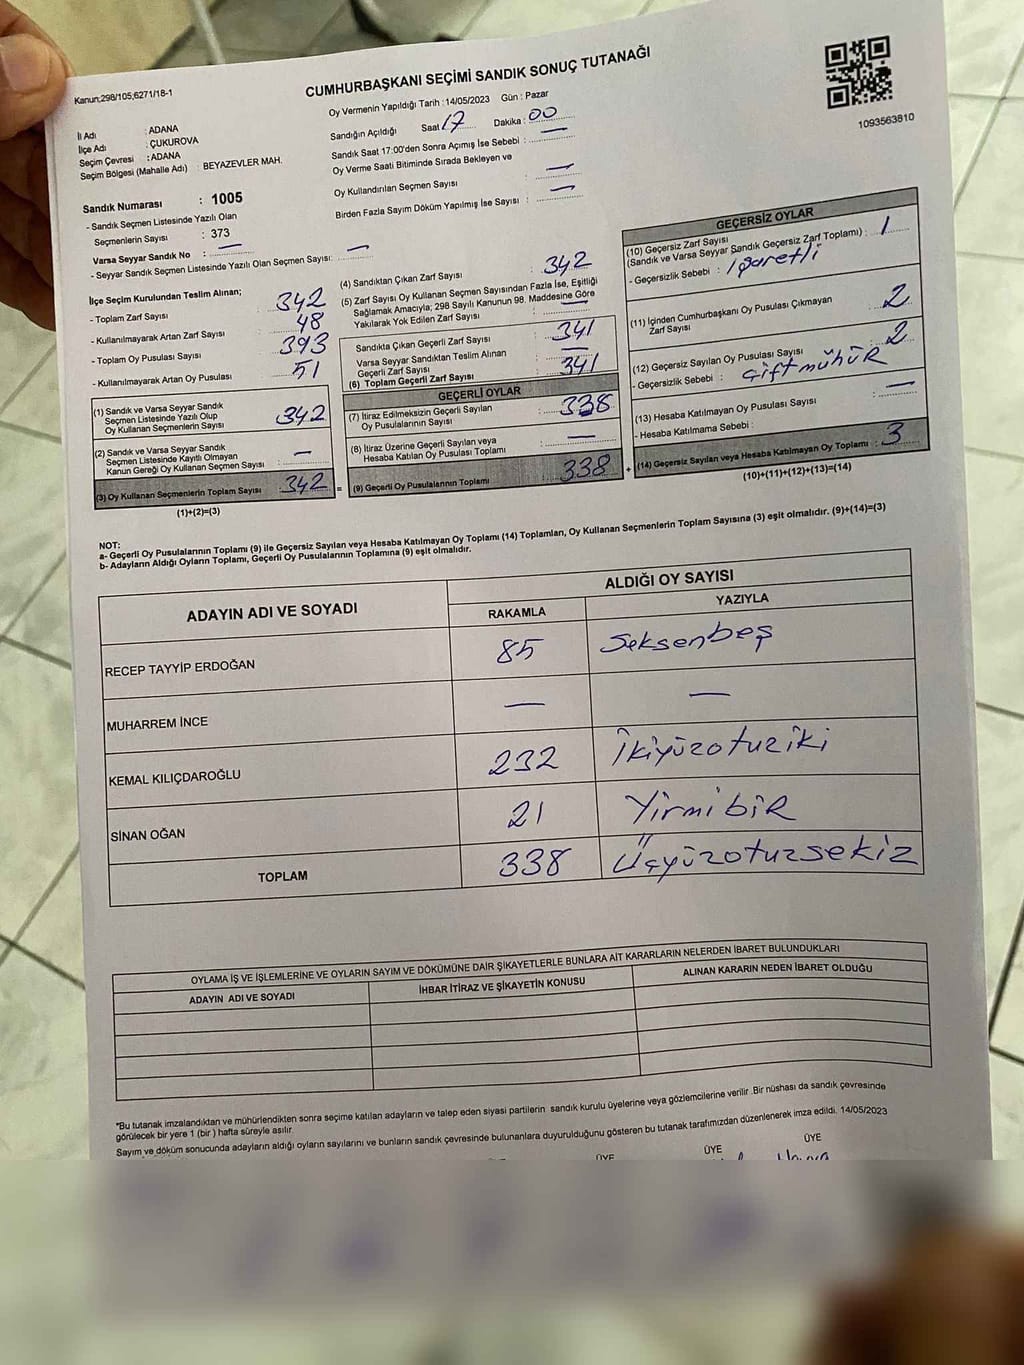 Kanun;298/105;6271/18-1
CUMHURBAŞKANI SEÇİMİ SANDIK SONUÇ TUTANAĞI
1093563810
Oy Vermenin Yapıldığı Tarih : 14/05/2023 Gün : Pazar
Sandığın Açıldığı Saat 17 Dakika : 00
Sandık Saat 17:00'den Sonra Açımış İse Sebebi : —
Oy Verme Saati Bitiminde Sırada Bekleyen ve
Oy Kullandırılan Seçmen Sayısı : —
Birden Fazla Sayım Döküm Yapılmış İse Sayısı : —
İl Adı : ADANA
İlçe Adı : ÇUKUROVA
Seçim Çevresi : ADANA
Seçim Bölgesi (Mahalle Adı) : BEYAZEVLER MAH.
Sandık Numarası : 1005
- Sandık Seçmen Listesinde Yazılı Olan
Seçmenlerin Sayısı : 373
Varsa Seyyar Sandık No : —
- Seyyar Sandık Seçmen Listesinde Yazılı Olan Seçmen Sayısı: —
İlçe Seçim Kurulundan Teslim Alınan;
- Toplam Zarf Sayısı 342
- Kullanılmayarak Artan Zarf Sayısı 48
- Toplam Oy Pusulası Sayısı 393
- Kullanılmayarak Artan Oy Pusulası 51
(1) Sandık ve Varsa Seyyar Sandık
Seçmen Listesinde Yazılı Olup
Oy Kullanan Seçmenlerin Sayısı : 342
(2) Sandık ve Varsa Seyyar Sandık
Seçmen Listesinde Kayıtlı Olmayan
Kanun Gereği Oy Kullanan Seçmen Sayısı : —
(3) Oy Kullanan Seçmenlerin Toplam Sayısı : 342
(1)+(2)=(3)
(4) Sandıktan Çıkan Zarf Sayısı : 342
(5) Zarf Sayısı Oy Kullanan Seçmen Sayısından Fazla İse, Eşitliği
Sağlamak Amacıyla; 298 Sayılı Kanunun 98. Maddesine Göre
Yakılarak Yok Edilen Zarf Sayısı :
Sandıkta Çıkan Geçerli Zarf Sayısı : 341
Varsa Seyyar Sandıktan Teslim Alınan
Geçerli Zarf Sayısı : —
(6) Toplam Geçerli Zarf Sayısı : 341
GEÇERLİ OYLAR
(7) İtiraz Edilmeksizin Geçerli Sayılan
Oy Pusulasının Sayısı : 338
(8) İtiraz Üzerine Geçerli Sayılan veya
Hesaba Katılan Oy Pusulası Toplamı : —
= (9) Geçerli Oy Pusulalarının Toplamı : 338 +
GEÇERSİZ OYLAR
(10) Geçersiz Zarf Sayısı
(Sandık ve Varsa Seyyar Sandık Geçersiz Zarf Toplamı) : 1
- Geçersizlik Sebebi : işaretli
(11) İçinden Cumhurbaşkanı Oy Pusulası Çıkmayan
Zarf Sayısı : 2
(12) Geçersiz Sayılan Oy Pusulası Sayısı : 2
- Geçersizlik Sebebi : çift mühür
(13) Hesaba Katılmayan Oy Pusulası Sayısı : —
- Hesaba Katılmama Sebebi :
(14) Geçersiz Sayılan veya Hesaba Katılmayan Oy Toplamı : 3
(10)+(11)+(12)+(13)=(14)
NOT:
a- Geçerli Oy Pusulalarının Toplamı (9) ile Geçersiz Sayılan veya Hesaba Katılmayan Oy Toplamı (14) Toplamları, Oy Kullanan Seçmenlerin Toplam Sayısına (3) eşit olmalıdır. (9)+(14)=(3)
b- Adayların Aldığı Oyların Toplamı, Geçerli Oy Pusulalarının Toplamına (9) eşit olmalıdır.
ADAYIN ADI VE SOYADI
ALDIĞI OY SAYISI
RAKAMLA YAZIYLA
RECEP TAYYİP ERDOĞAN 85 Seksenbeş
MUHARREM İNCE — —
KEMAL KILIÇDAROĞLU 232 İkiyüzotuziki
SİNAN OĞAN 21 Yirmibir
TOPLAM 338 Üçyüzotuzsekiz
OYLAMA İŞ VE İŞLEMLERİNE VE OYLARIN SAYIM VE DÖKÜMÜNE DAİR ŞİKAYETLERLE BUNLARA AİT KARARLARIN NELERDEN İBARET BULUNDUKLARI
ADAYIN ADI VE SOYADI İHBAR İTİRAZ VE ŞİKAYETİN KONUSU ALINAN KARARIN NEDEN İBARET OLDUĞU
*Bu tutanak imzalandıktan ve mühürlendikten sonra seçime katılan adayların ve talep eden siyasi partilerin sandık kurulu üyelerine veya gözlemcilerine verilir .Bir nüshası da sandık çevresinde
görülecek bir yere 1 (bir ) hafta süreyle asılır.
Sayım ve döküm sonucunda adayların aldığı oyların sayılarını ve bunların sandık çevresinde bulunanlara duyurulduğunu gösteren bu tutanak tarafımızdan düzenlenerek imza edildi. 14/05/2023
ÜYE ÜYE ÜYE